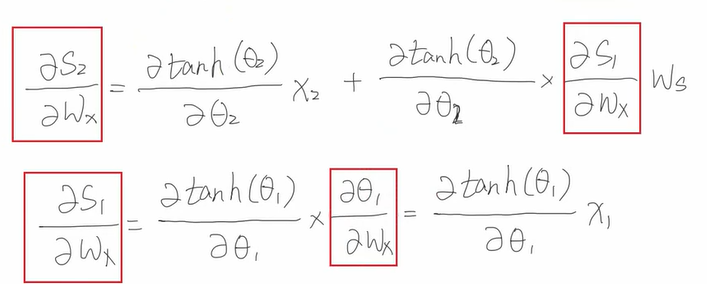 ∂S₂/∂Wₓ = ∂tanh(θ₂)/∂θ₂ X₂ + ∂tanh(θ₂)/∂θ₂ × ∂S₁/∂Wₓ Wₛ
∂S₁/∂Wₓ = ∂tanh(θ₁)/∂θ₁ × ∂θ₁/∂Wₓ = ∂tanh(θ₁)/∂θ₁ X₁